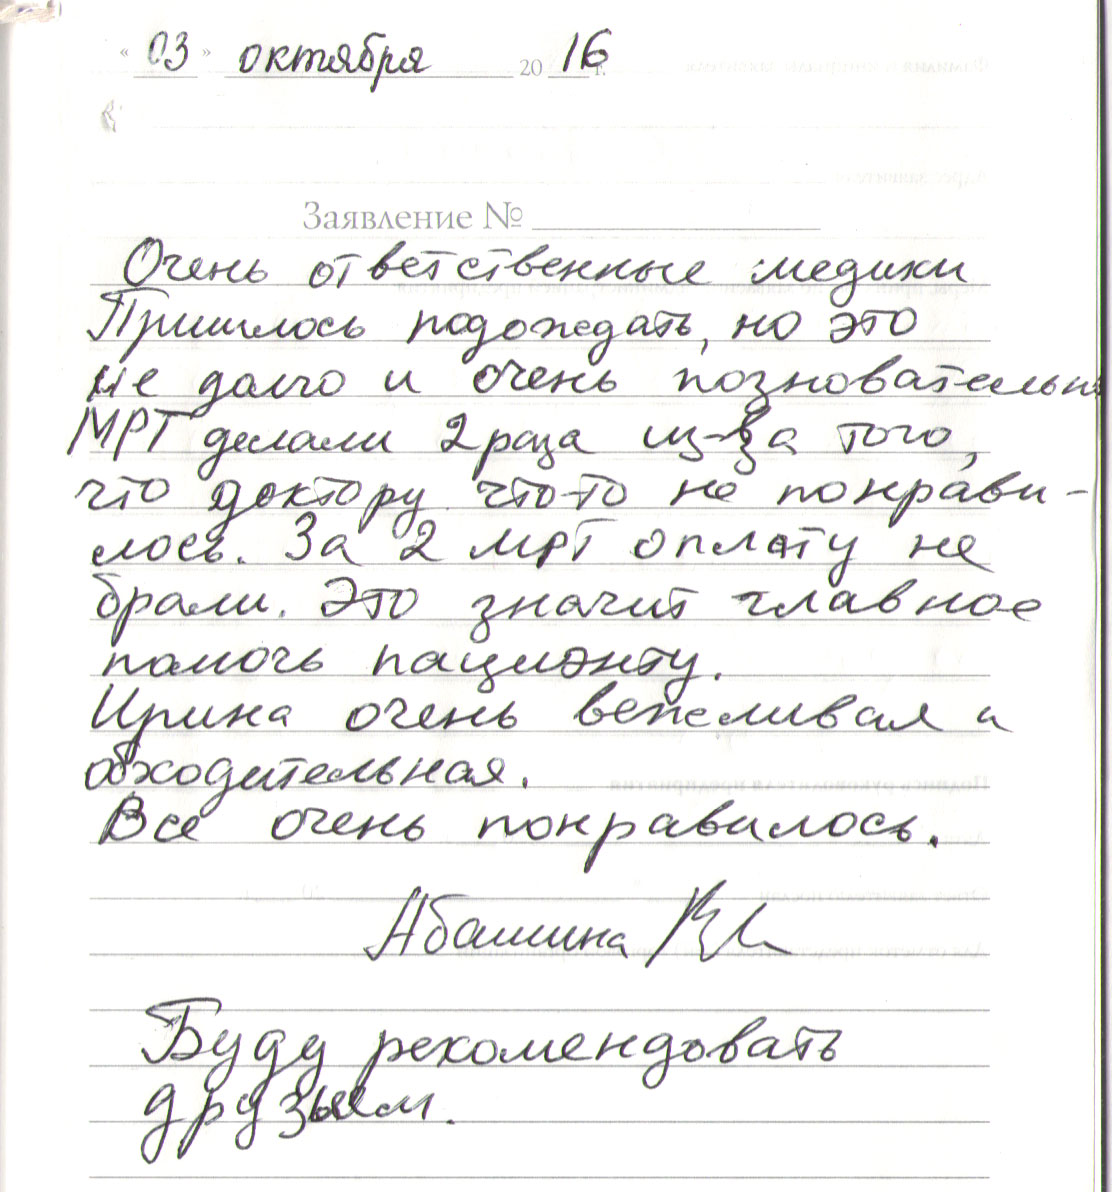 « 03 » октября 2016 г.
Заявление №
Очень ответственные медики
Пришлось подождать, но это
не долго и очень позновательно
МРТ делали 2 раза из-за того,
что доктору что-то не понрави-
лось. За 2 МРТ оплату не
брали. Это значит главное
помочь пациэнту.
Ирина очень вежеливая и
обходительная.
Все очень понравилось.
Абашина
Буду рекомендовать
друзьям.